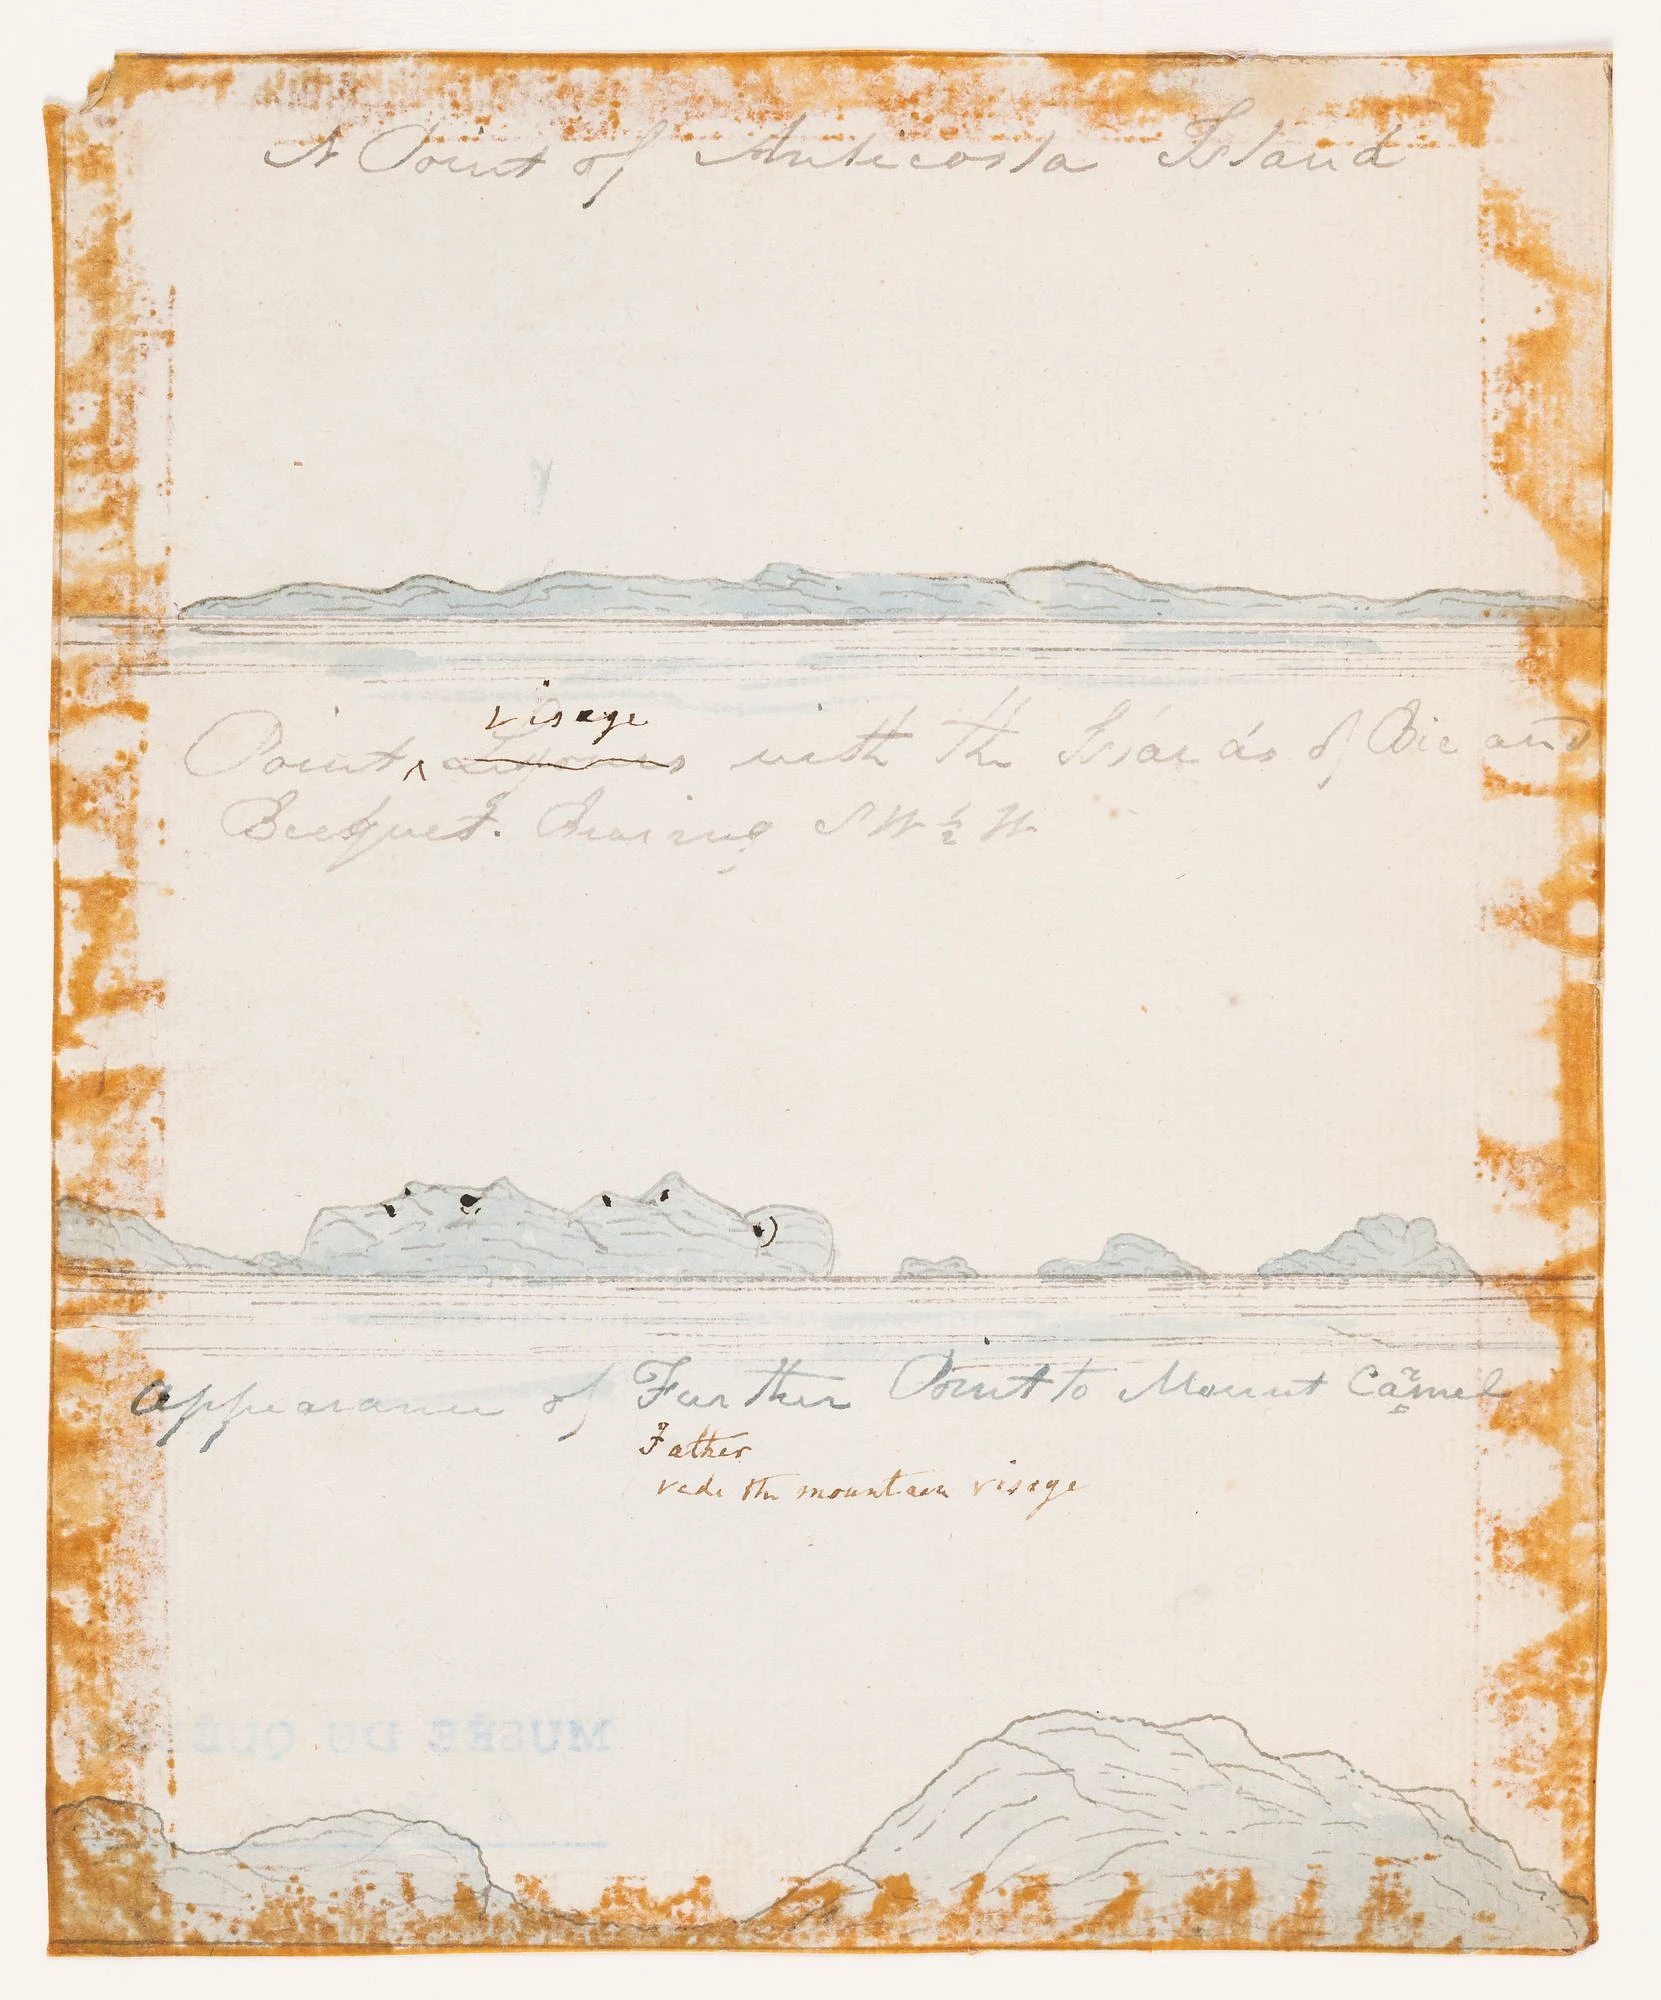 A Point of Anticosta Island
visage
Point with the Islands of Bic and
Becquet. Bearing SW ½ W
appearance of Further Point to Mount Camel
Father
vede the mountain visage
MUSÉE DU QUÉ